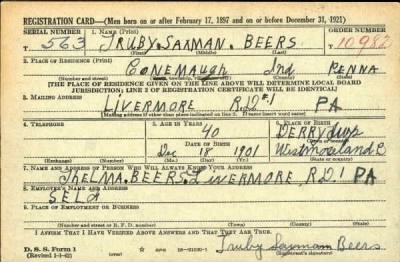 REGISTRATION CARD—(Men born on or after February 17, 1897 and on or before December 31, 1921)
SERIAL NUMBER 1. NAME (Print) ORDER NUMBER
T 563 TRUBY SAXMAN BEERS 10982
(First) (Middle) (Last)
2. PLACE OF RESIDENCE (Print)
CONEMAUGH Ind PENNA
(Number and street) (Town, township, village, or city) (County) (State)
[THE PLACE OF RESIDENCE GIVEN ON THE LINE ABOVE WILL DETERMINE LOCAL BOARD
JURISDICTION; LINE 2 OF REGISTRATION CERTIFICATE WILL BE IDENTICAL]
3. MAILING ADDRESS
LIVERMORE R.D.#1 PA
[Mailing address if other than place indicated on line 2. If same insert word same]
4. TELEPHONE 5. AGE IN YEARS 6. PLACE OF BIRTH
40 DERRY twp
DATE OF BIRTH (Town or county)
Dec 18 1901 Westmoreland
(Exchange) (Number) (Mo.) (Day) (Yr.) (State or country)
7. NAME AND ADDRESS OF PERSON WHO WILL ALWAYS KNOW YOUR ADDRESS
THELMA. BEERS. LIVERMORE. R.D.1 PA
8. EMPLOYER'S NAME AND ADDRESS
SELF
9. PLACE OF EMPLOYMENT OR BUSINESS
(Number and street or R. F. D. number) (Town) (County) (State)
I AFFIRM THAT I HAVE VERIFIED ABOVE ANSWERS AND THAT THEY ARE TRUE.
D. S. S. Form 1
(Revised 1-1-42) Truby Saxman Beers